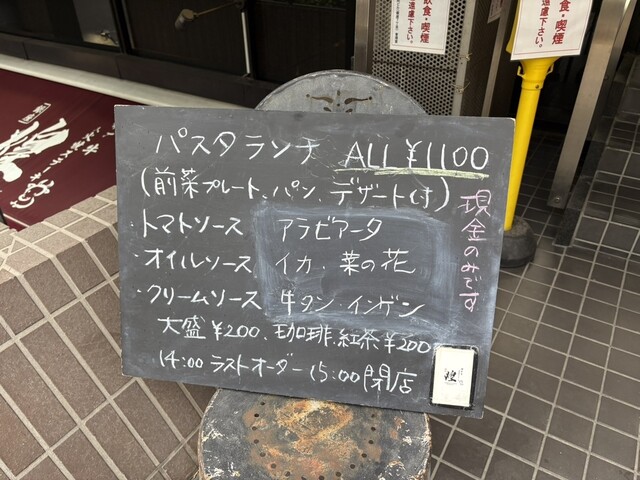 パスタランチ ALL ¥1100
(前菜プレート、パン、デザート付)
・トマトソース アラビアータ
・オイルソース イカ・菜の花
・クリームソース 牛タン・インゲン
大盛¥200、珈琲、紅茶¥200
14:00 ラストオーダー 15:00 閉店
現金のみです
飲食・喫煙
ご遠慮下さい。
飲食・喫煙
ご遠慮下さい。